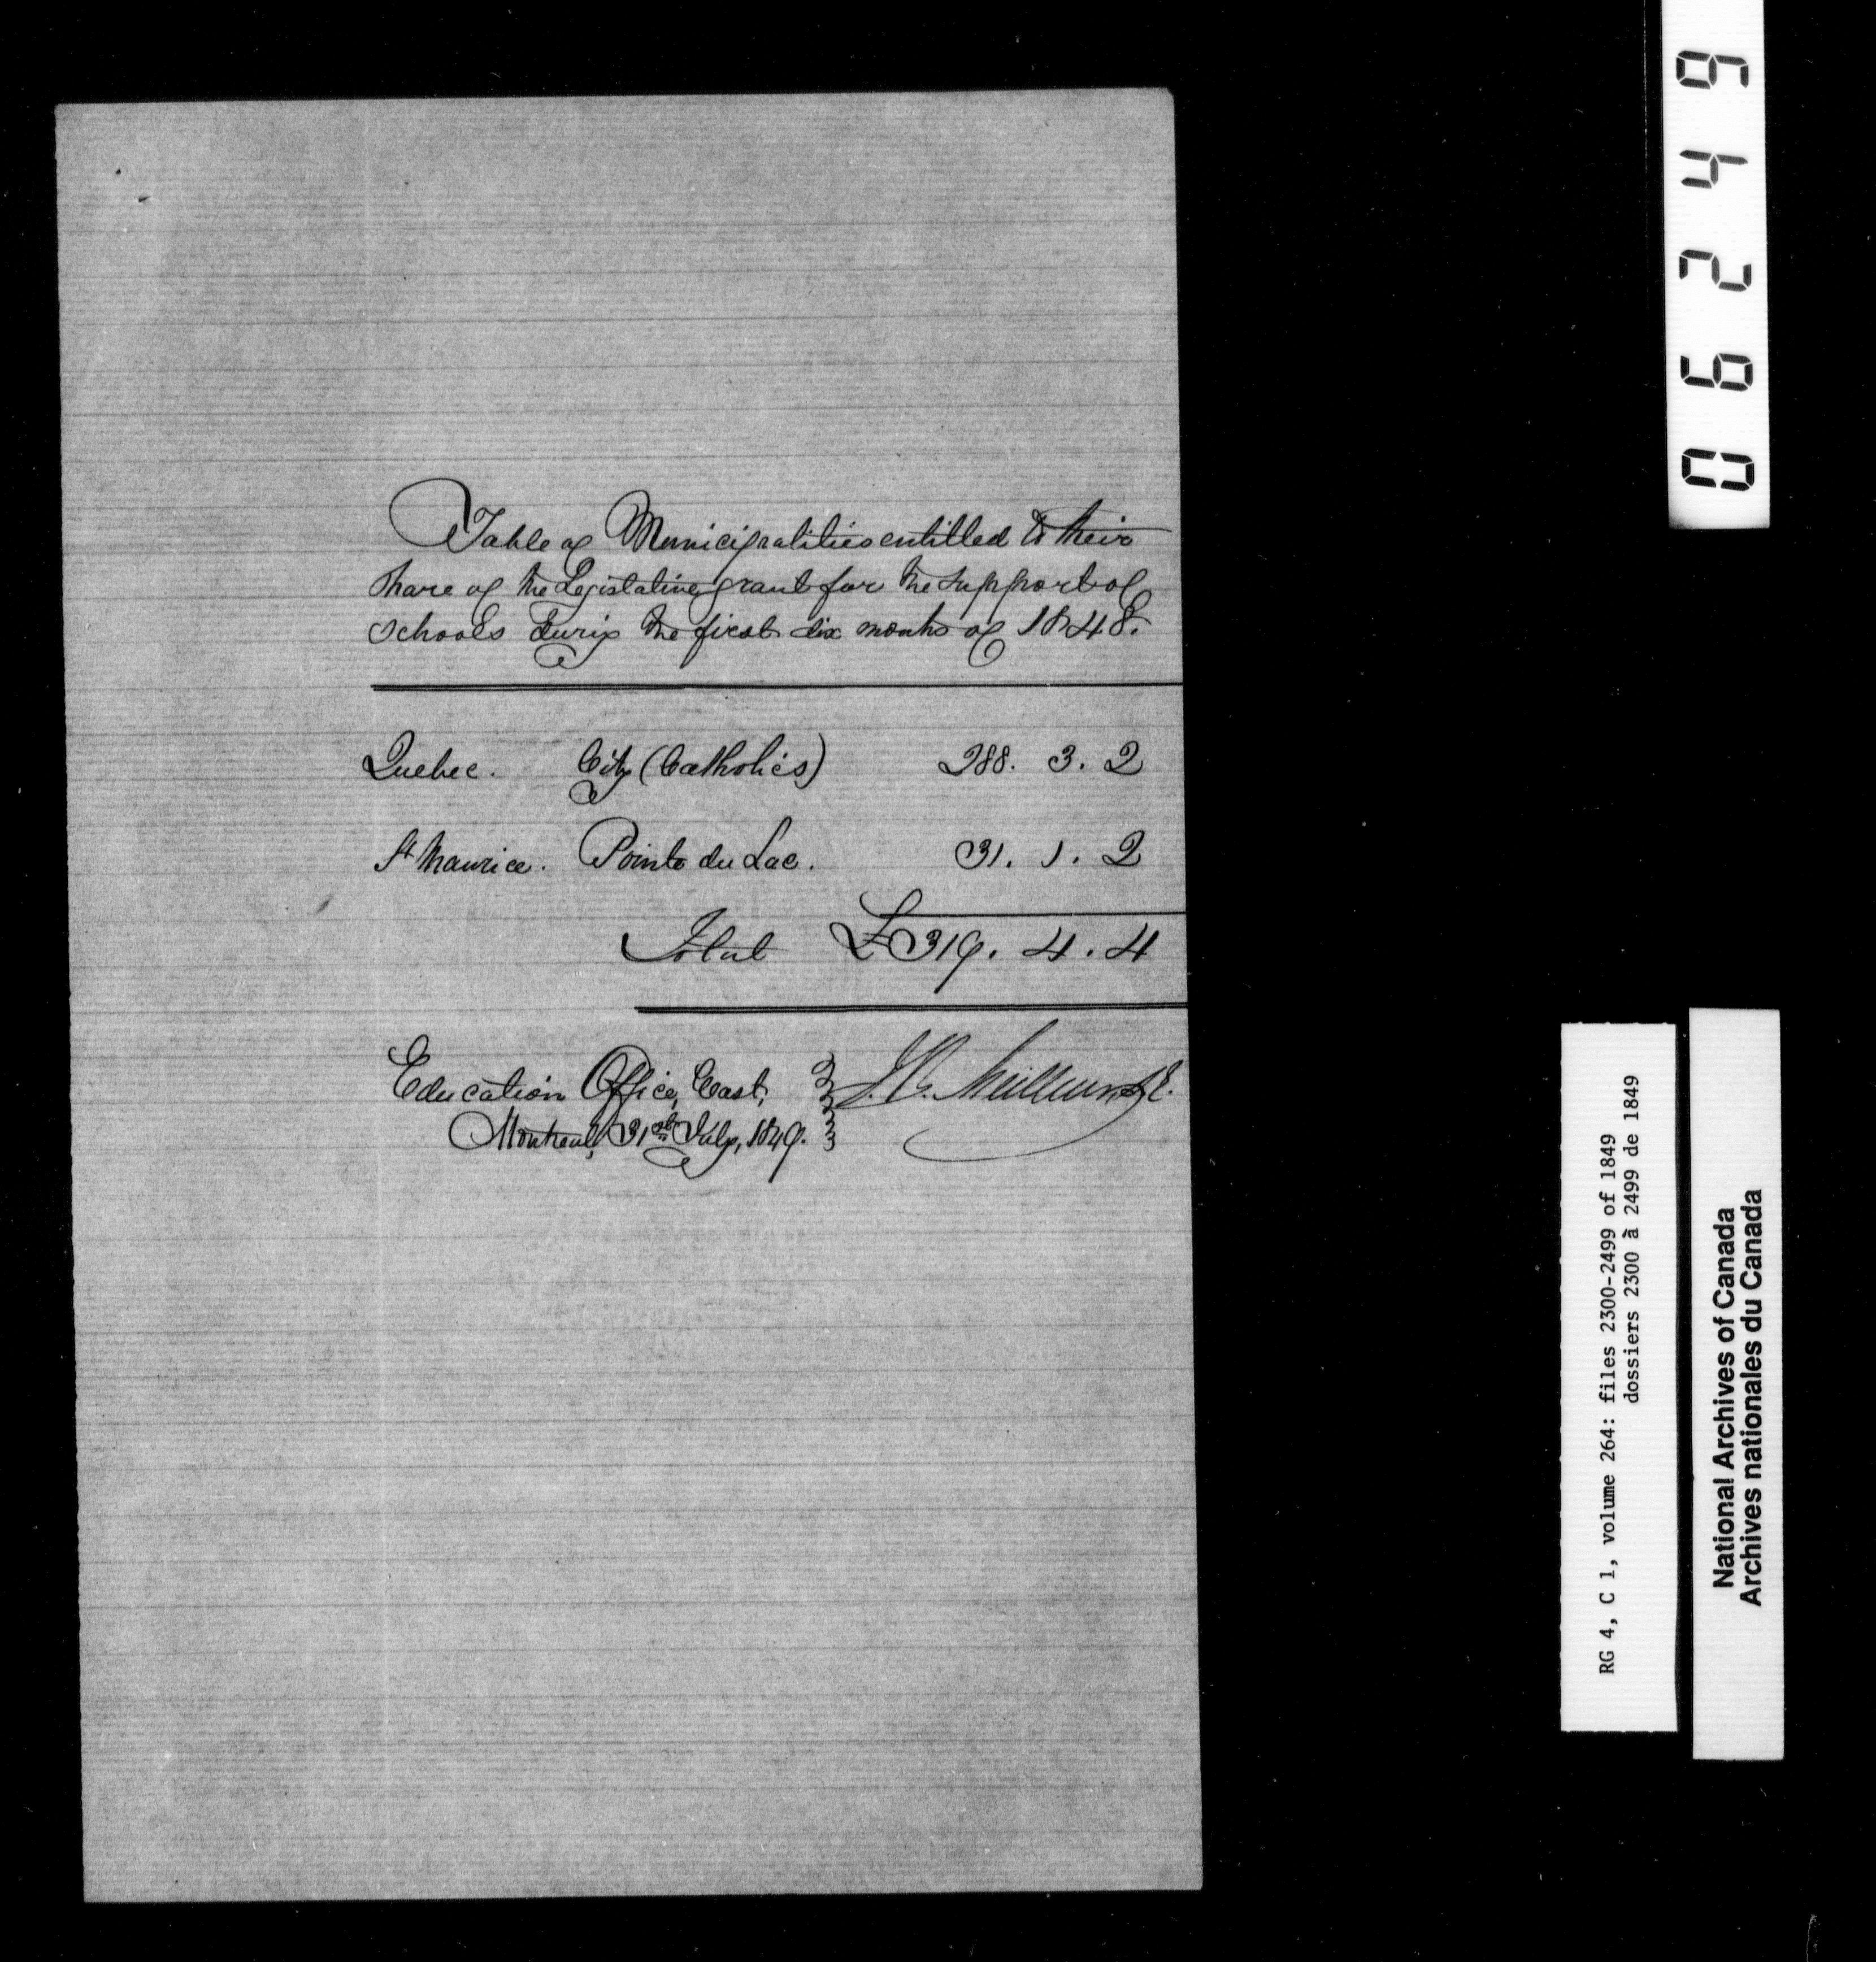 Table of Municipalities entitled to their
share of the Legislative grant for the support of
schools during the first six months of 1848.
Quebec. City (Catholics) 288. 3. 2
St Maurice. Pointe du Lac. 31. 1. 2
Total £319. 4. 4
Education Office, East,
Montreal, 31st July, 1849.
J. B. Meilleur, S.E.
06249
RG 4, C 1, volume 264: files 2300-2499 of 1849
dossiers 2300 à 2499 de 1849
National Archives of Canada
Archives nationales du Canada